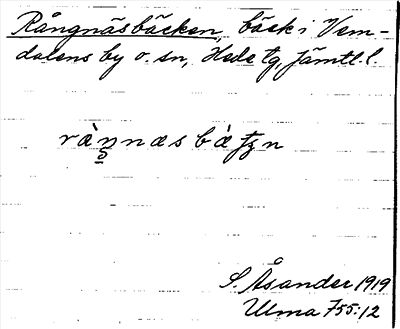 Rångnäsbäcken, bäck i Vem-
dalens by o. sn, Hede tg, Jämtl. l.
S. Åsander 1919
Ulma 755:12